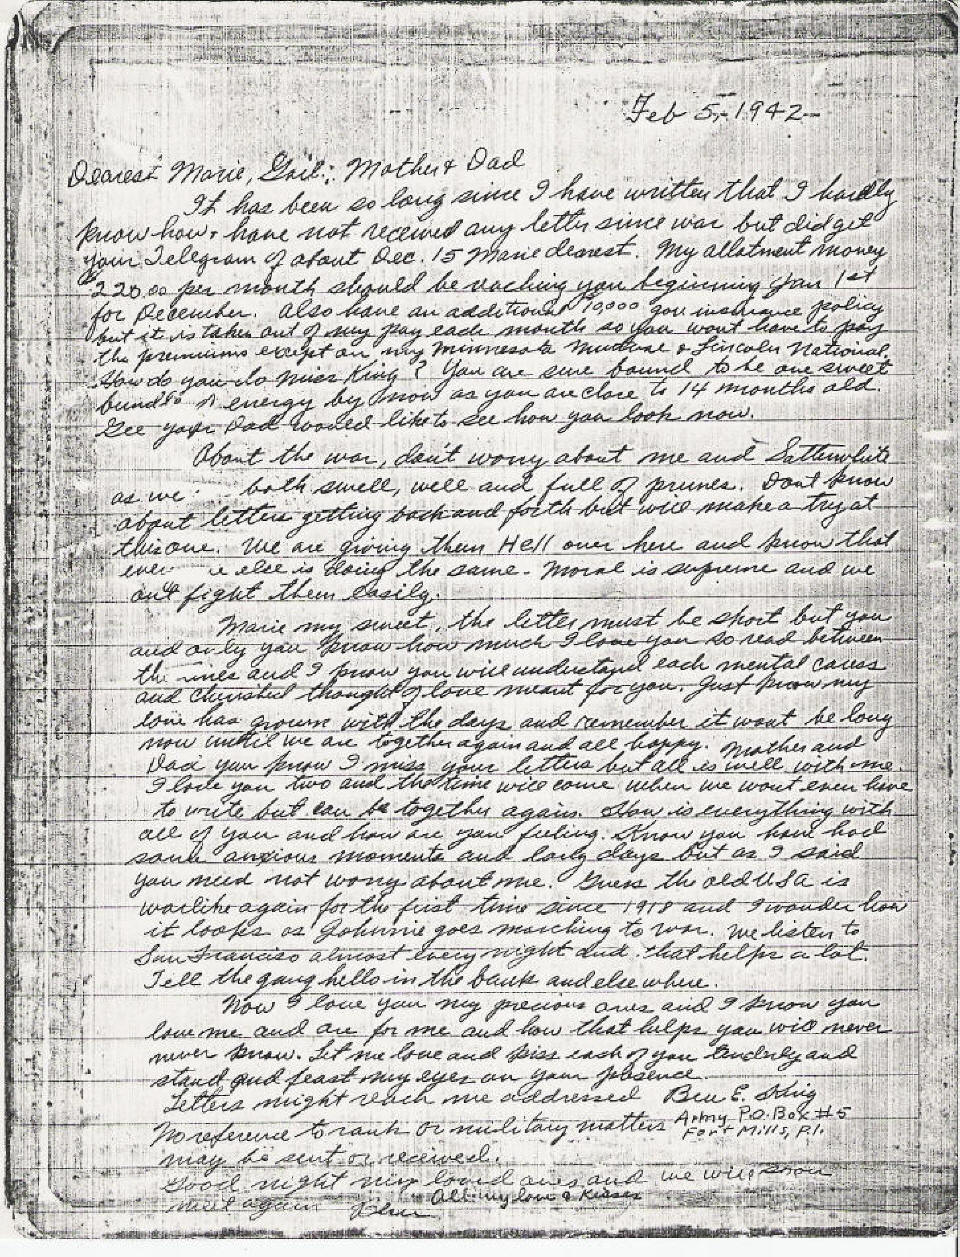 Feb 5,-1942-
Dearest Marie, Gail, Mother & Dad
It has been so long since I have written that I hardly
know how, have not received any letter since war but did get
your Telegram of about Dec. 15 Marie dearest. My allotment money
$220.00 per month should be reaching you beginning Jan 1st
for December. Also have an additional $10,000 gov insurance policy
but it is taken out of my pay each month so you wont have to pay
the premiums except on my Minnesota Mutual & Lincoln National.
How do you do Miss King? You are sure bound to be one sweet
bundle of energy by now as you are close to 14 months old.
Gee your Dad would like to see how you look now.
About the war, don't worry about me and Satterwhite
as we both swell, well and full of prunes. Dont know
about letters getting back and forth but will make a try at
this one. We are giving them Hell over here and know that
else is doing the same. Moral is supreme and we
fight them easily.
Marie my sweet, the letter must be short but you
and only you know how much I love you so read between
the lines and I know you will understand each mental caress
and cherished thought of love meant for you. Just know my
love has grown with the days and remember it wont be long
now until we are together again and all happy. Mother and
Dad you know I miss your letters but all is well with me
I love you two and the time will come when we wont even have
to write but can be together again. How is everything with
all of you and how are you feeling. Know you have had
some anxious moments and long days but as I said
you need not worry about me. Guess the old USA is
warlike again for the first time since 1918 and I wonder how
it looks as Johnnie goes marching to war. We listen to
San Francisco almost every night and that helps a lot.
Tell the gang hello in the bank and elsewhere.
Now I love you my precious ones and I know you
love me and are for me and how that helps you will never
never know. Let me love and kiss each of you tenderly and
stand and feast my eyes on your presence
Letters might reach me addressed Ben E. King
Army P.O. Box #5
Fort Mills, P.I.
No reference to rank or military matters
may be sent or received.
Good night my loved ones and we will soon
meet again All my love & Kisses
Ben